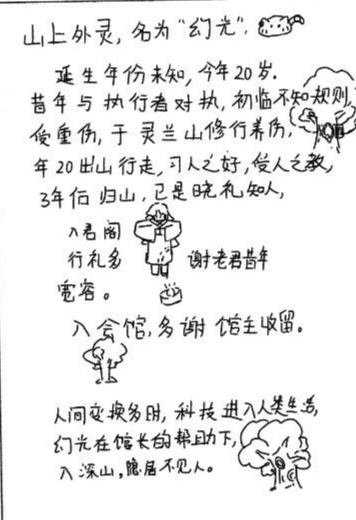 山上外灵，名为“幻光”，
诞生年份未知，今年20岁.
昔年与执行者对执，初临不知规则，
受重伤，于灵兰山修行养伤，
年20出山行走，习人之好，受人之教，
3年后归山，已是晓礼知人，
入君阁
行礼多 谢老君昔年
宽容。
入会馆，多谢馆主收留。
人间变换多时，科技进入人类生活，
幻光在馆长的帮助下，
入深山，隐居不见人。